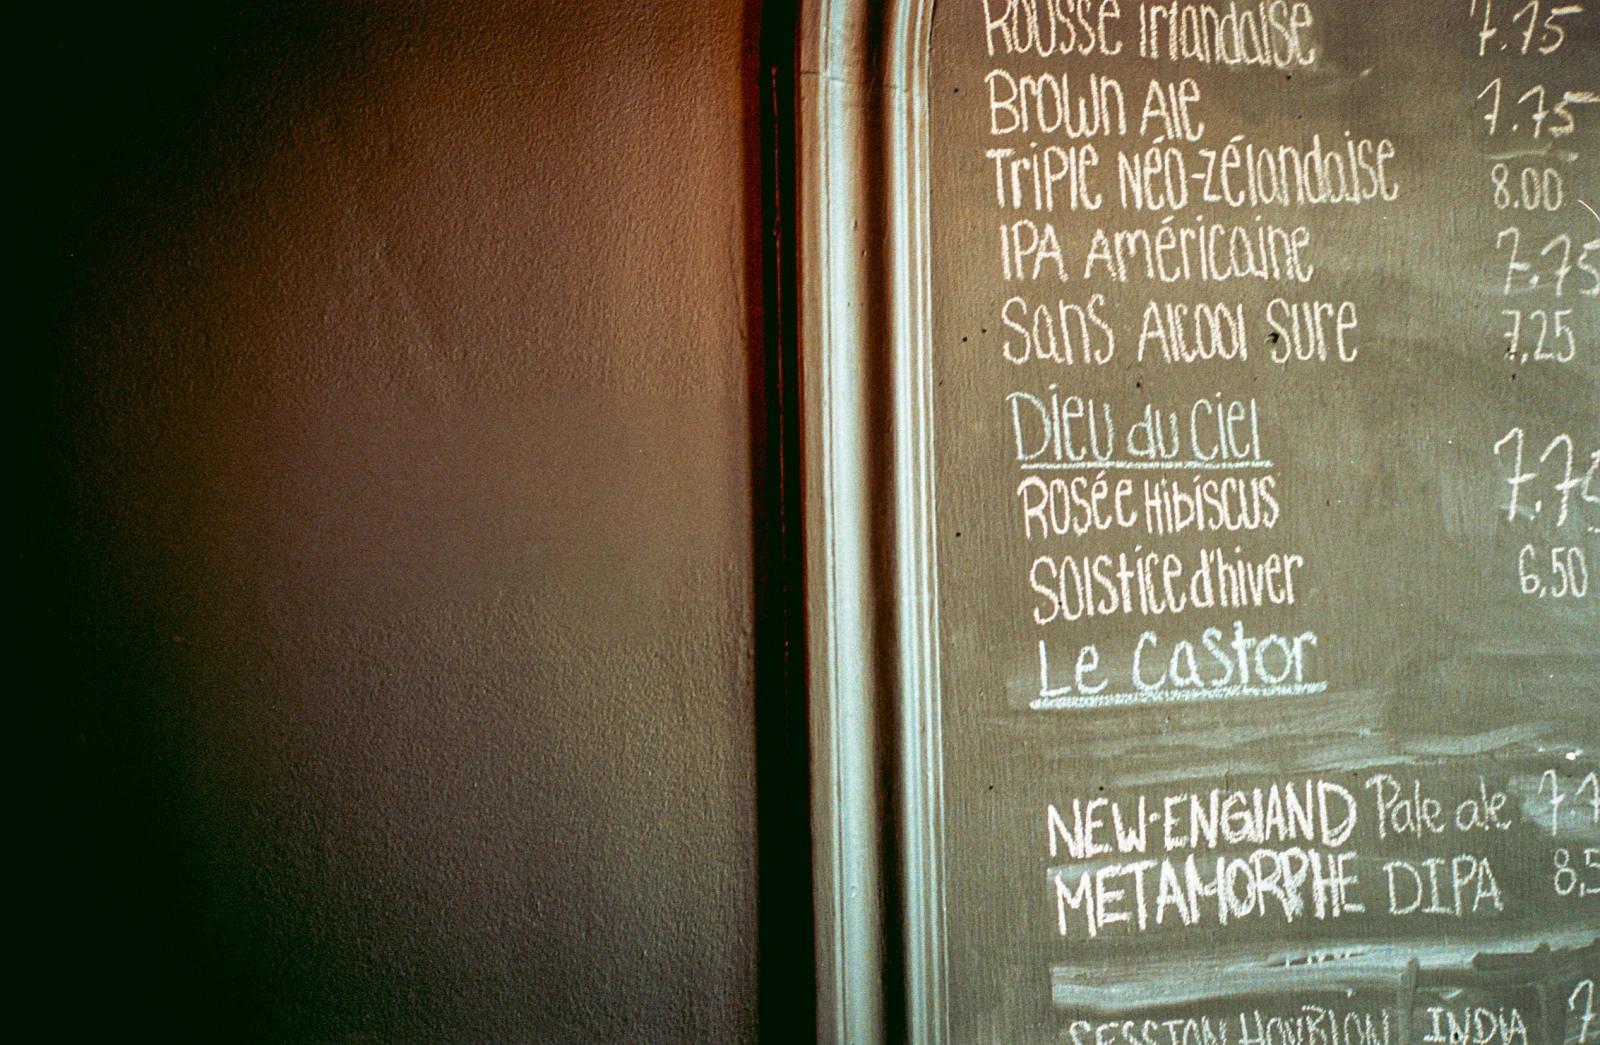 Rousse Irlandaise 7.75
Brown Ale 7.75
Triple Néo-zélandaise 8.00
IPA Américaine 7.75
Sans Alcool Sure 7.25
Dieu du Ciel
Rosée Hibiscus 7.75
Solstice d'hiver 6,50
Le Castor
NEW-ENGLAND Pale ale
METAMORPHE DIPA 8,5
SESSION HOUBLON INDIA